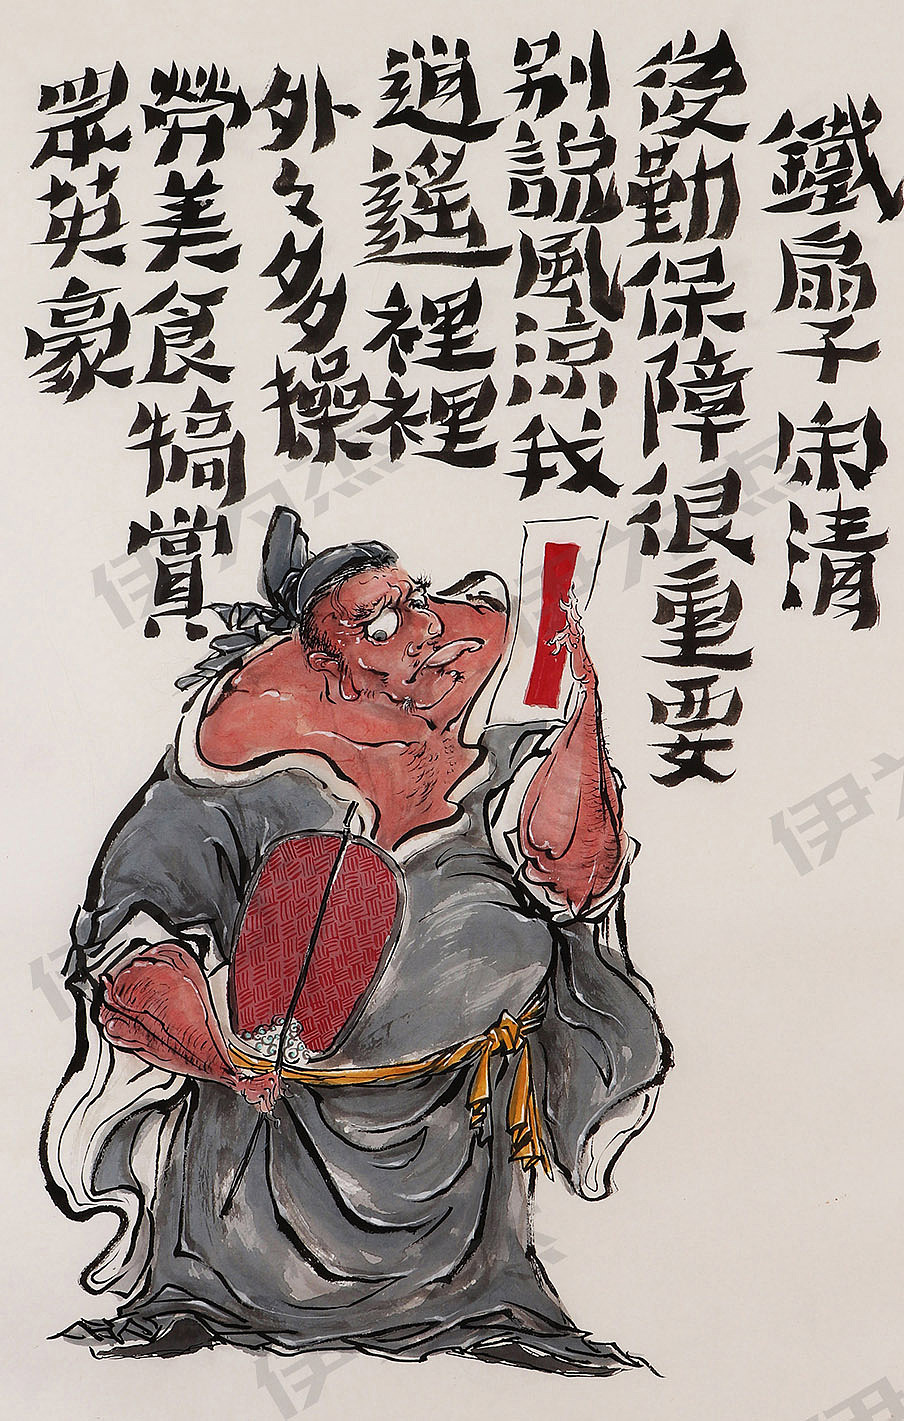 鐵扇子宋清
後勤保障很重要
别説風涼我
逍遥裡裡
外々多操
勞美食犒賞
眾英豪
伊为杰